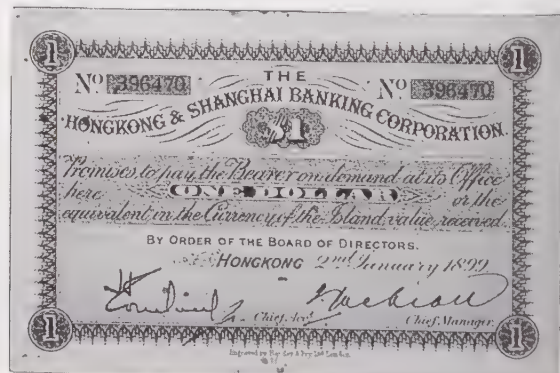 1 1
THE
Nº 396470 Nº 396470
HONGKONG & SHANGHAI BANKING CORPORATION.
$1
Promises to pay the Bearer on demand at its Office
here ONE DOLLAR or the
equivalent in the Currency of the Island, value received.
BY ORDER OF THE BOARD OF DIRECTORS.
HONGKONG 2nd January 1899
Chief Acct. Chief Manager.
1 1
Engraved by